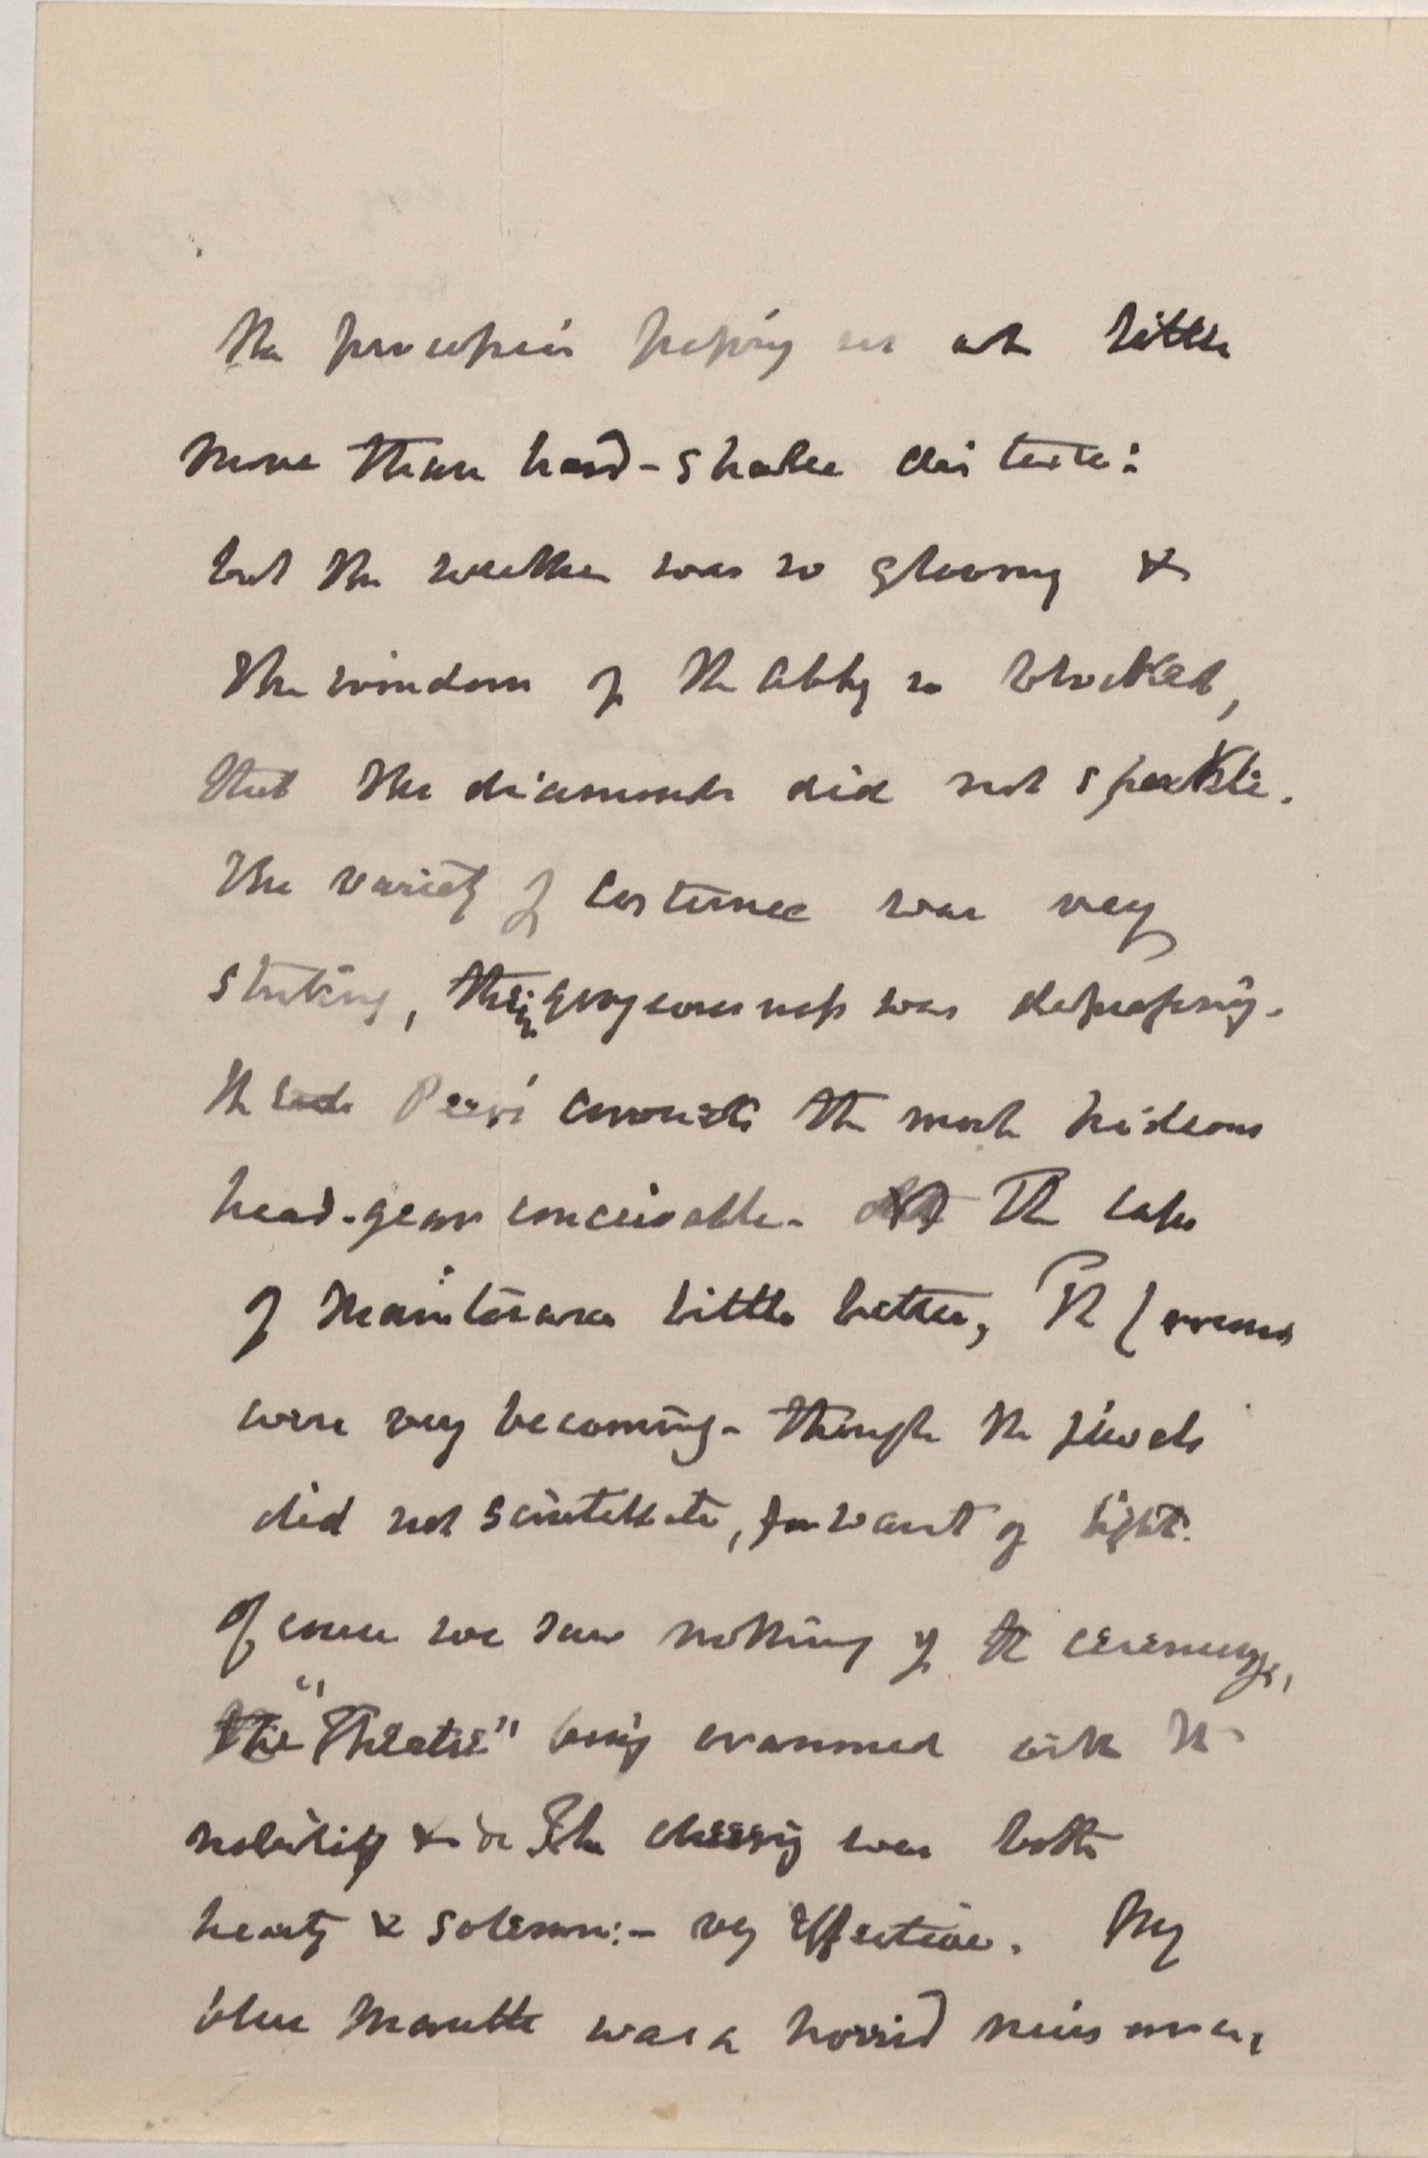 the procession passing us at little
more than hand-shake distance:
but the weather was so gloomy &
the windows of the Abbey so blocked,
that the diamonds did not sparkle.
The variety of costumes was very
striking, their gorgeousness was depressing.
the Peers' coronets the most hideous
head-gear conceivable. The caps
of Maintenance little better, The crowns
were very becoming - though the jewels
did not scintillate, for want of light.
Of course we saw nothing of the ceremony,
the "Theatre" being crammed with the
nobility &c &c The cheering was both
hearty & solemn:- very effective. My
blue Mantle was a horrid nuisance,